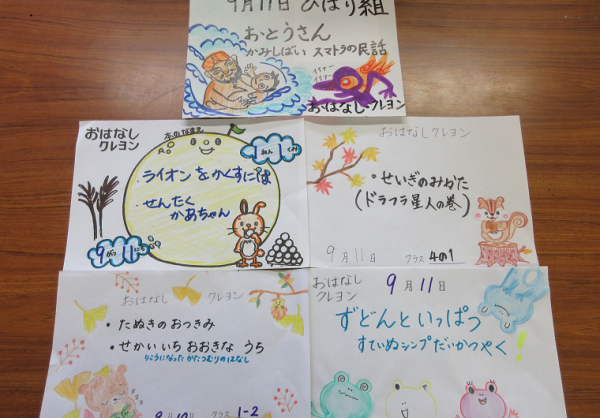 9月11日 ひばり組
おとうさん
かみしばい スマトラの民話
イイナー
イイナー
おはなしクレヨン
おはなし
クレヨン
本のなまえ
1ねん1くみ
・ライオンをかくすには
・せんたく
かあちゃん
9がつ11にち
おはなしクレヨン
・せいぎのみかた
(ドラフラ星人の巻)
9月11日 クラス 4の1
おはなし クレヨン
・たぬきのおつきみ
・せかいいちおおきな うち
りこうになったかたつむりのはなし
クラス 1-2
おはなし
クレヨン
9月11日
ずどんといっぱつ
すていぬシンプだいかつやく!